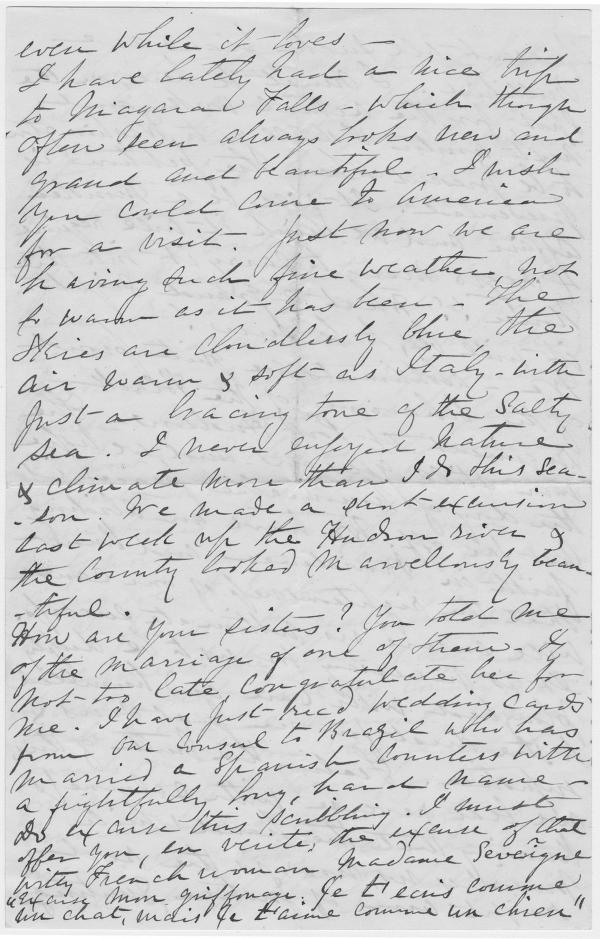 even while it loves —
I have lately had a nice trip
to Niagara Falls - which though
often seen always looks new and
grand and beautiful - I wish
you could come to America
for a visit. Just now we are
having such fine weather, not
so warm as it has been - The
skies are cloudlessly blue, the
air warm & soft as Italy - with
just a bracing tone of the Salty
sea. I never enjoyed nature
& climate more than I do this sea-
-son. We made a short excursion
last week up the Hudson river &
the County looked marvellously beau-
-tiful.
How are your sisters? You told me
of the marriage of one of them - If
not too late, Congratulate her for
me. I have just recd wedding cards
from our consul to Brazil who has
married a Spanish Countess with
a frightfully long, hard name -
do excuse this scribbling. I must
offer you, en verité, the excuse of that
witty French woman Madame Severgne
"Excuse mon griffonage. Je t'ecris comme
un chat, mais Je t'aime comme un chien"